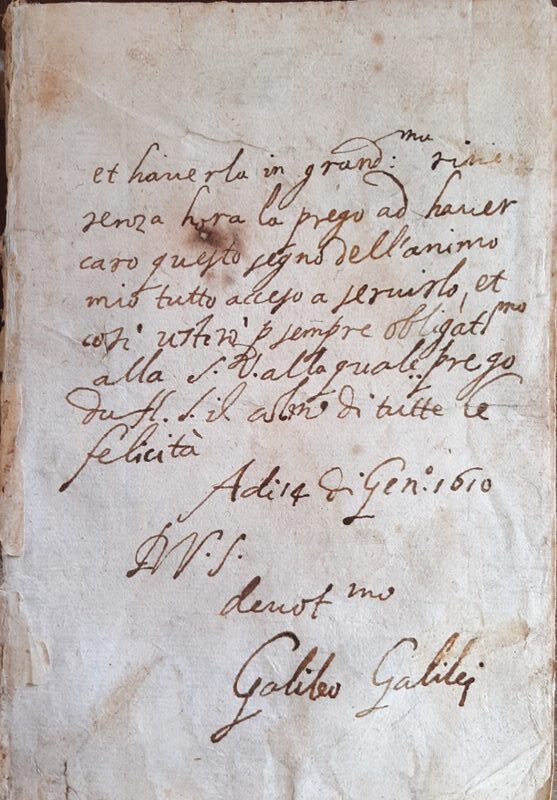 et hauerla in grand:ma rive
senza hora la prego ad hauer
caro questo segno dell'animo
mio tutto acceso a seruirlo, et
così p sempre obligatmo
alla S. V. alla quale prego
da N. S. il colmo di tutte le
felicità
Adi 14 di Gen.o 1610
D V. S.
deuotmo
Galileo Galilei